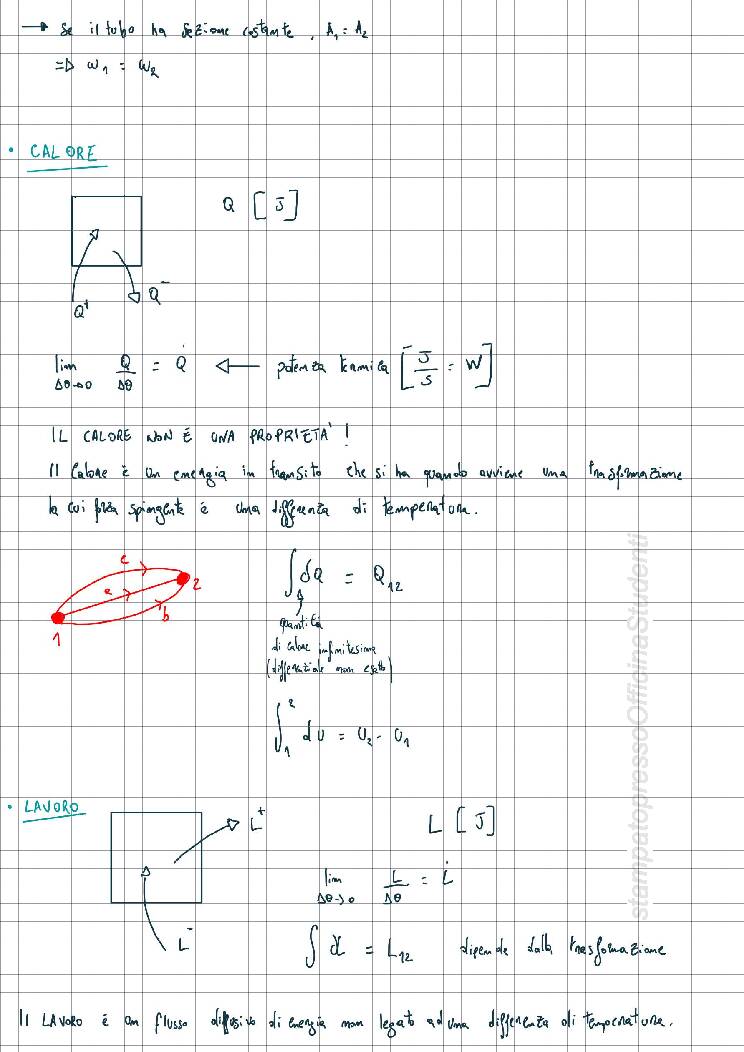 → Se il tubo ha sezione costante, A₁ = A₂
⇒ w₁ = w₂
• CALORE
Q [J]
Q⁺ Q⁻
lim Δθ→0 Q/Δθ = Q̇ ← potenza termica [J/s = W]
IL CALORE NON È UNA PROPRIETÀ!
Il Calore è un energia in transito che si ha quando avviene una trasformazione
la cui forza spingente è una differenza di temperatura.
c
a
b
1
2
∫ δQ = Q₁₂
quantità
di calore infinitesima
(differenziale non esatto)
∫₁² dU = U₂ - U₁
• LAVORO
L⁺
L⁻
L [J]
lim Δθ→0 L/Δθ = L̇
∫ δL = L₁₂ dipende dalla trasformazione
Il LAVORO è un flusso diffusivo di energia non legato ad una differenza di temperatura.
stampatopressoOfficinaStudenti